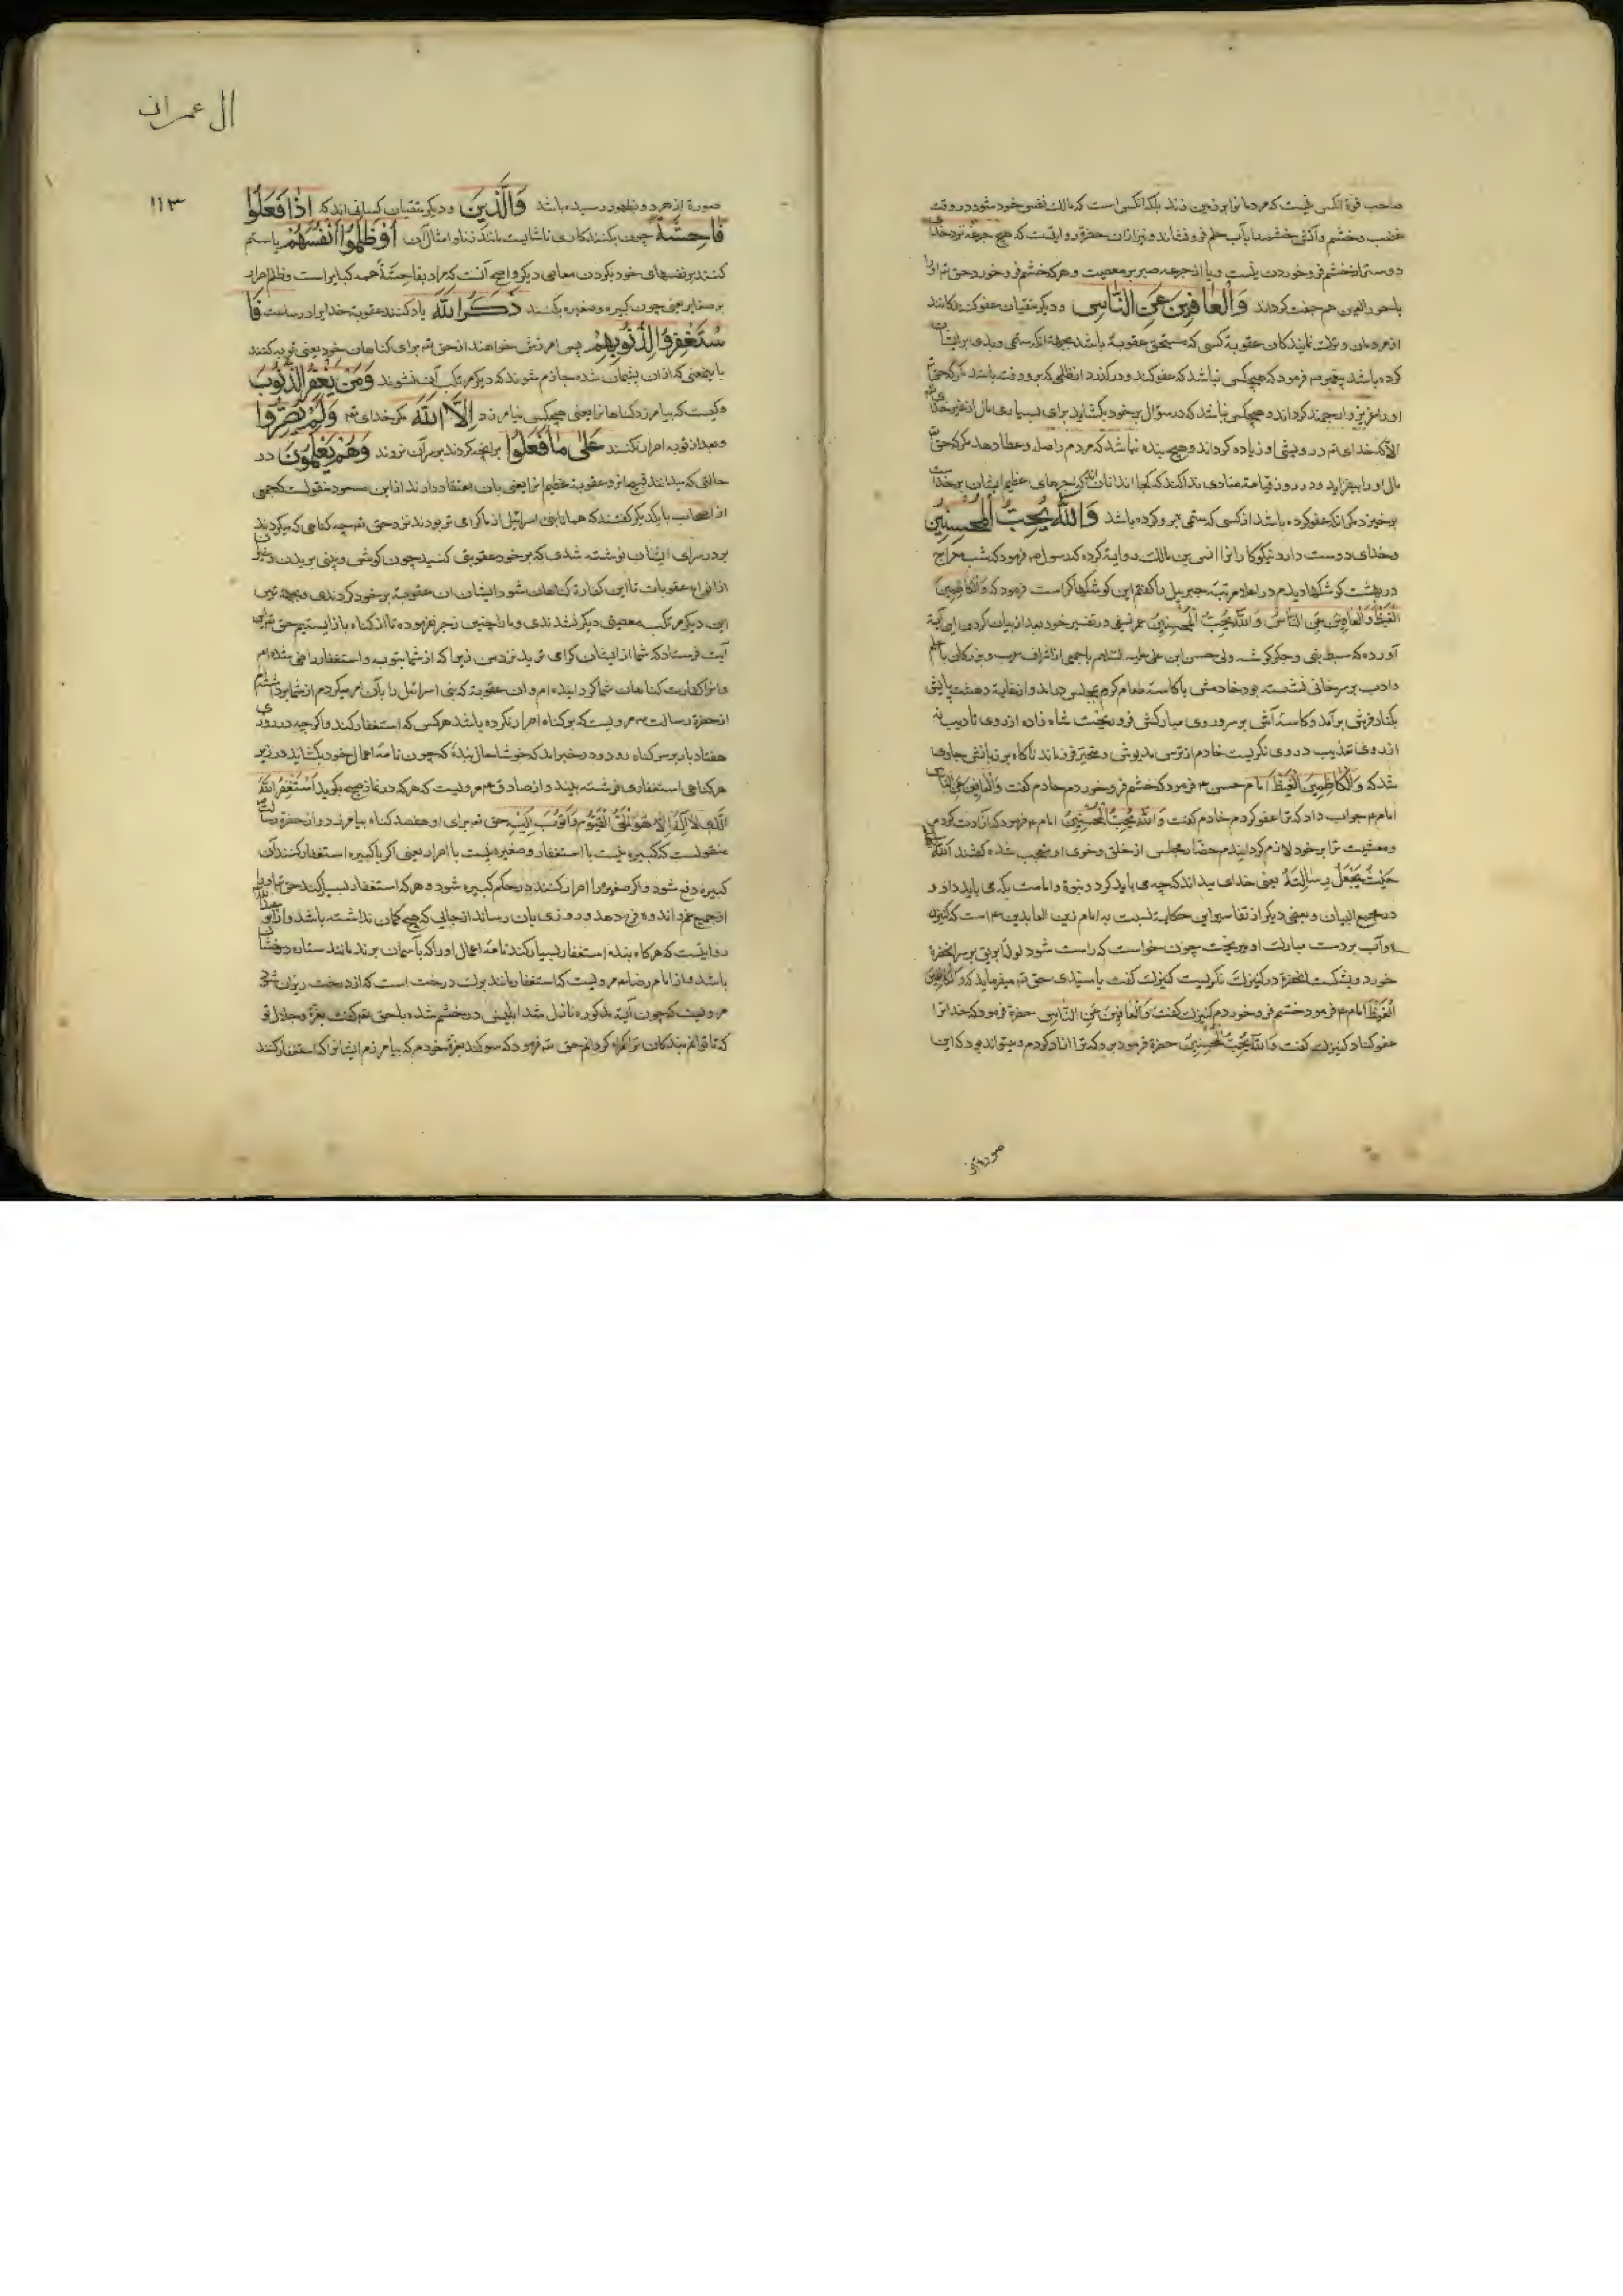 صاحب قوة انکس نیست که مردمانرا بر زمین زند بلکه انکس است که مالک نفس خود شود در وقت
غضب و خشم و آتش خشم را بآب حلم فرو نشاند و نیز ازان حضرة روایتست که هیچ جرعه نزد خدا
دوستر از خشم فرو خوردن نیست و یا از جرعه صبر بر معصیت و هرکه خشم فرو خورد حق تع او را
با حور العین هم جفت کرداند وَالْعَافِینَ عَنِ النَّاسِ و دیکر متقیان عفو کنندکانند
از مردمان و ترک نمایندکان عقوبة کسی که مستحق عقوبة باشد بجهة انکه ستمی و بدی بر ایشان
کرده باشد پیغمبر ص فرمود که هیچکس نباشد که عفو کند و درکذرد از ظلمی که برو رفته باشد مکر که حق تع
او را عزیز و ارجمند کرداند و هیچکس نباشد که در سؤال بر خود بکشاید برای بسیاری مال از غیر خدا
الا که خدای تع درویشی او زیاده کرداند و هیچ بنده نباشد که مردم را صله و عطا دهد مکر که حق تع
مال او را بیفزاید و در روز قیامة منادی ندا کند که کجا اند انان که اجرهای عظیم ایشان بر خداست
برخیزد مکر انکه عفو کرده باشد از کسی که ستمی برو کرده باشد وَاللّٰهُ یُحِبُّ الْمُحْسِنِینَ
و خدای دوست دارد نیکوکارانرا انس بن مالک روایة کرده که رسول ص فرمود که شب معراج
در بهشت کوشکها دیدم در اعلا مرتبه جبرییل را کفتم این کوشکها کراست فرمود که وَالْکَاظِمِینَ
الْغَیْظَ وَالْعَافِینَ عَنِ النَّاسِ وَاللّٰهُ یُحِبُّ الْمُحْسِنِینَ عمر نسفی در تفسیر خود بعد از بیان کردن این آیة
آورده که سبط نبی و جکرکوشه ولی حسن ابن علی علیه السلام با جمعی از اشراف عرب و بزرکان با علم
و ادب بر سر خوانی نشسته بود خادمش با کاسه طعام کرم بمجلس دراید و از غایة دهشت پایش
بکنار فرش برآمد و کاسه آش بر سر و روی مبارکش فرو ریخت شاه زاده از روی تادیب نه
از روی تعذیب در وی نکریست خادم از ترس مدهوش و متحیر فرو ماند ناکاه بر زبانش جاری
شد که وَالْکَاظِمِینَ الْغَیْظَ امام حسن ع فرمود که خشم فرو خوردم خادم کفت وَالْعَافِینَ عَنِ النَّاسِ
امام ع جواب داد که ترا عفو کردم خادم کفت وَاللّٰهُ یُحِبُّ الْمُحْسِنِینَ امام ع فرمود که آزادت کردم
و معیشت ترا بر خود لازم کردانیدم حضار مجلس از خلق و خوی او متعجب شده کفتند اَللّٰهُ اَعْلَمُ
حَیْثُ یَجْعَلُ رِسَالَتَهُ یعنی خدای میداند که چه می باید کرد و نبوة و امامت بکه می باید داد و
در مجمع البیان و بعضی دیکر از تفاسیر این حکایة نسبت به امام زین العابدین ع است که کنیزک
او آب بر دست مبارک او میریخت چون خواست که راست شود لوله ابریق بر سر انحضرة
خورد و بشکست انحضرة در کنیزک نکریست کنیزک کفت یا سیدی حق تع میفرماید که وَالْکَاظِمِینَ
الْغَیْظَ امام ع فرمود خشم فرو خوردم کنیزک کفت وَالْعَافِینَ عَنِ النَّاسِ حضرة فرمود که خدا ترا
عفو کناد کنیزک کفت وَاللّٰهُ یُحِبُّ الْمُحْسِنِینَ حضرة فرمود برو که ترا ازاد کردم و میتواند بود که این
صورة از
ال عمران
۱۱۳
صورة از هر دو بظهور رسیده باشد وَالَّذِینَ و دیکر متقیان کسانی اند که اِذَا فَعَلُوا
فَاحِشَةً چون بکنند کاری ناشایست مانند زنا و امثال آن اَوْ ظَلَمُوا اَنْفُسَهُمْ یا ستم
کنند بر نفسهای خود بکردن معاصی دیکر و اصح آنست که مراد بفاحِشَةً همه کبایر است و ظلم اصرار
بر صغایر یعنی چون کبیره و صغیره بکنند ذَکَرُوا اللّٰهَ یاد کنند عقوبة خدایرا در ساعت فَا
سْتَغْفَرُوا لِذُنُوبِهِمْ پس امرزش خواهند از حق تع برای کناهان خود یعنی توبه کنند
بایمعنی که از ان پشیمان شده جازم شوند که دیکر مرتکب آن نشوند وَمَنْ یَغْفِرُ الذُّنُوبَ
و کیست که بیامرزد کناهانرا یعنی هیچکس نیامرزد اِلَّا اللّٰهُ مکر خدای تع وَلَمْ یُصِرُّوا
و بعد از توبه اصرار نکنند عَلٰی مَا فَعَلُوا بر انچه کردند بر سر آن نروند وَهُمْ یَعْلَمُونَ در
حالتی که میدانند قبح انرا و عقوبة عظیم انرا یعنی بان اعتقاد دارند از ابن مسعود منقولست که جمعی
از اصحاب با یکدیکر کفتند که همانا بنی اسرائیل از ما کرامی تر بودند نزد حق تع چه کناهی که میکردند
بر در سرای ایشان نوشته شدی که بر خود عقوبتی کنید چون کوش و بینی بریدن و غیر
از انواع عقوبات تا این کفارة کناهان شود ایشان ان عقوبة بر خود کردندی و بجهة ترس
این دیکر مرتکب معصیتی دیکر نشدندی و ما را چنین زجر نفرموده تا از کناه باز ایستیم حق تع این
آیت فرستاد که شما از ایشان کرامی ترید نزد من زیرا که از شما بتوبه و استغفار راضی شده ام
و انرا کفارت کناهان شما کردانیده ام و ان عقوبة که بنی اسرائیل را بآن امر میکردم از شما برداشته ام
از حضرة رسالت ص مرویست که بر کناه اصرار نکرده باشد هر کس که استغفار کند و اکرچه در روزی
هفتاد بار بر سر کناه رود و در خبر امد که خوشا حال بندۀ که چون نامۀ اعمال خود بکشاید در زیر
هر کناهی استغفاری نوشته بیند و از صادق ع مرویست که هرکه در نماز صبح بکوید اَسْتَغْفِرُ اللّٰهَ
الَّذِی لَا اِلٰهَ اِلَّا هُوَ الْحَیُّ الْقَیُّومُ وَاَتُوبُ اِلَیْهِ حق تع برای او هفصد کناه بیامرزد و از حضرة رسالت
منقولست که کبیره نیست با استغفار و صغیره نیست با اصرار یعنی اکر با کبیره استغفار کنند آن
کبیره دفع شود و اکر صغیره را اصرار کنند در حکم کبیره شود و هرکه استغفار بسیار کند حق تع او را
از جمیع غم و اندوه فرج دهد و روزی بان رساند از جائی که هیچ کمان نداشته باشد و از
روایتست که هرکاه بنده استغفار بسیار کند نامۀ اعمال او را که بآسمان برند مانند ستاره درخشان
باشد و از امام رضا ع مرویست که استغفار مانند برک درخت است که از درخت ریزان شود
مرویست که چون آیۀ مذکوره نازل شد ابلیس در خشم شده با حق تع کفت بعزة و جلال تو
که تا توانم بندکان ترا کمراه کردانم حق تع فرمود که سوکند بعزة خودم که بیامرزم ایشانرا که استغفار کنند